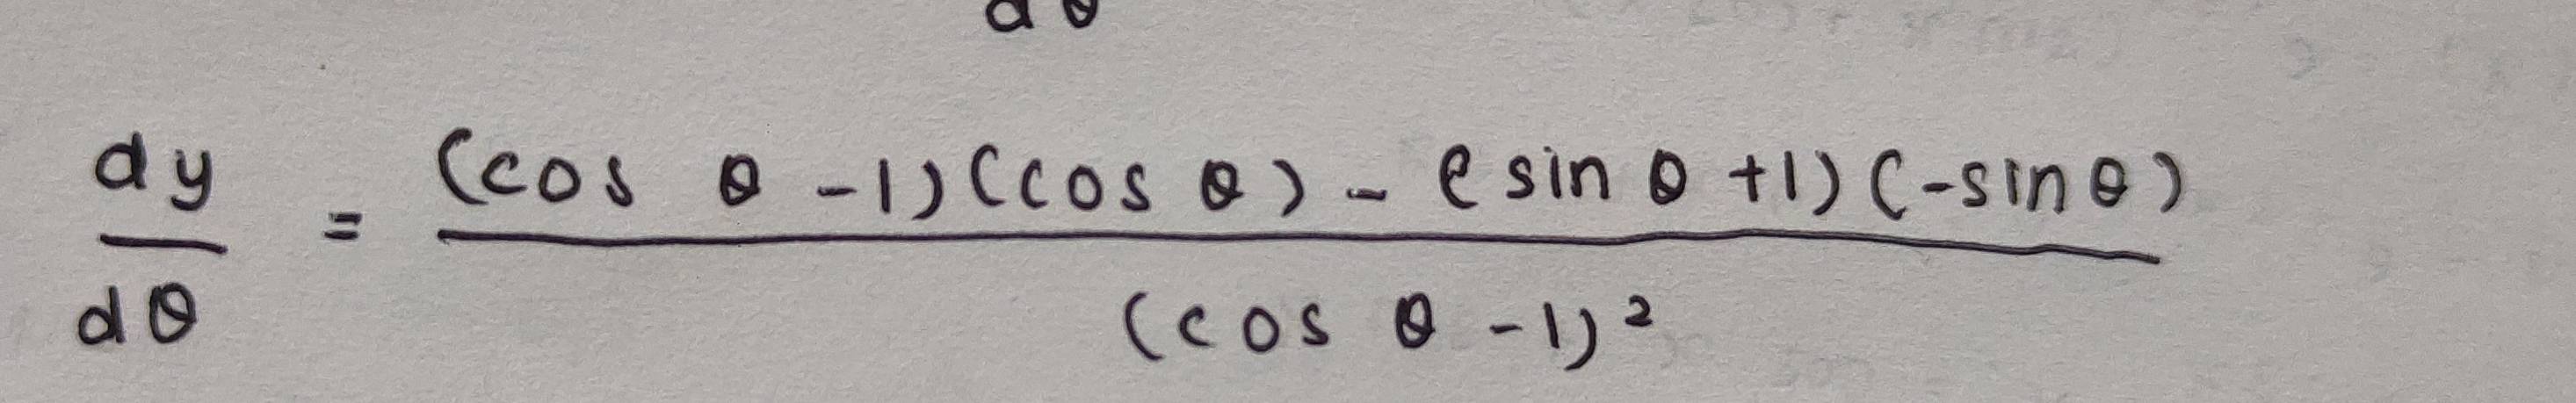 dθ
dy/dθ = (cos θ -1)(cos θ) - (sin θ +1)(-sin θ) / (cos θ -1)²